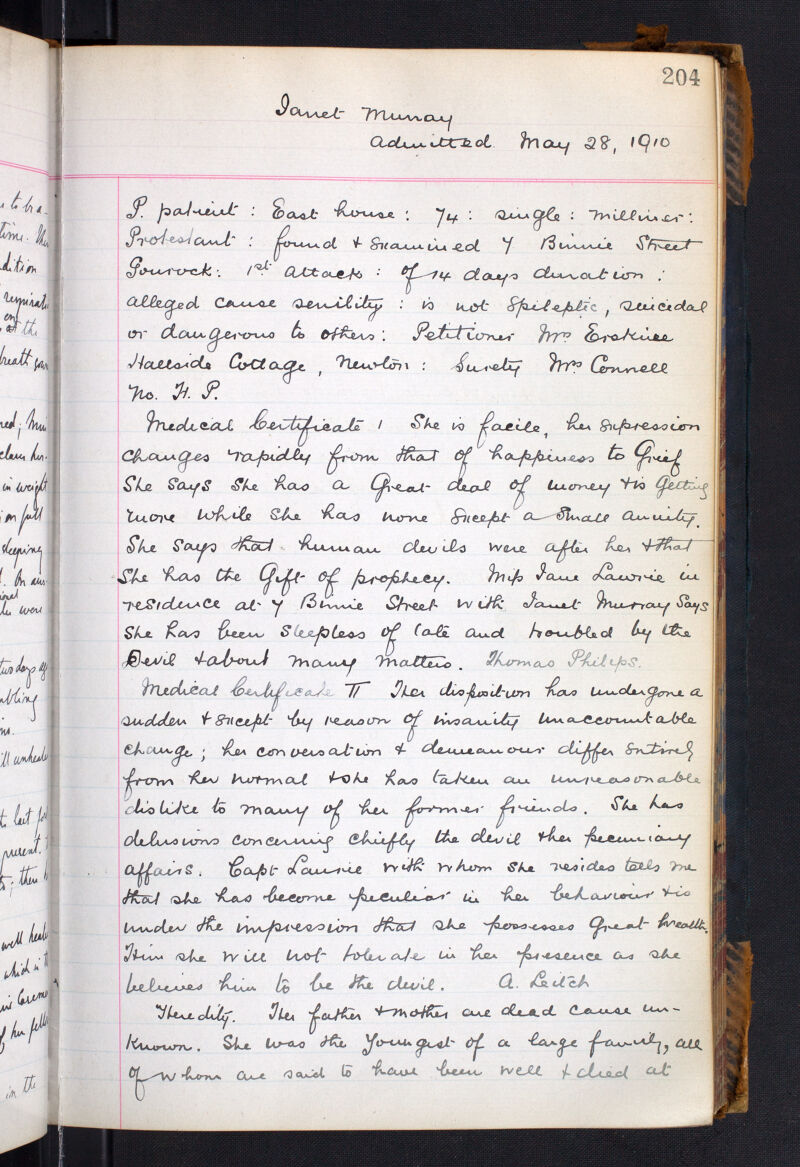 204
Janet Murray
Admitted May 28, 1910
P. patient : East house : 74 : single : milliner :
Protestant : found & examined 7 Binnie Street
Gourock : 1st attack : of 14 days duration :
alleged cause senility : is not Epileptic, suicidal
or dangerous to others : Petitioner Mrs Erskine
Hallside Cottage, Newton : Surety Mrs Connell
No. H. P.
Medical Certificate I She is facile, her expression
changes rapidly from that of happiness to Grief
She says she has a Great deal of money & is Getting
more while she has none Except a small annuity.
She says that human devils were after her & that
she has the Gift of prophecy. Miss Jane Lawrie in
residence at 7 Binnie Street with Janet Murray Says
she has been sleepless of late and troubled by the
Devil & about many matters. Thomas Philips.
Medical Certificate II Her disposition has undergone a
sudden & Except by reason of insanity unaccountable
change ; her conversation & demeanour differ Entirely
from her normal & she has taken an unreasonable
dislike to many of her former friends. She has
delusions concerning chiefly the devil & her pecuniary
affairs. Capt Laurie with whom she resides tells me
that she has become peculiar in her behaviour & is
under the impression that she possesses Great wealth.
Him she will not tolerate in her presence as she
believes him to be the devil. A. Leitch
Heredity. Her father & mother are dead cause un-
known. She was the Youngest of a large family, all
of whom are said to have been well & died at